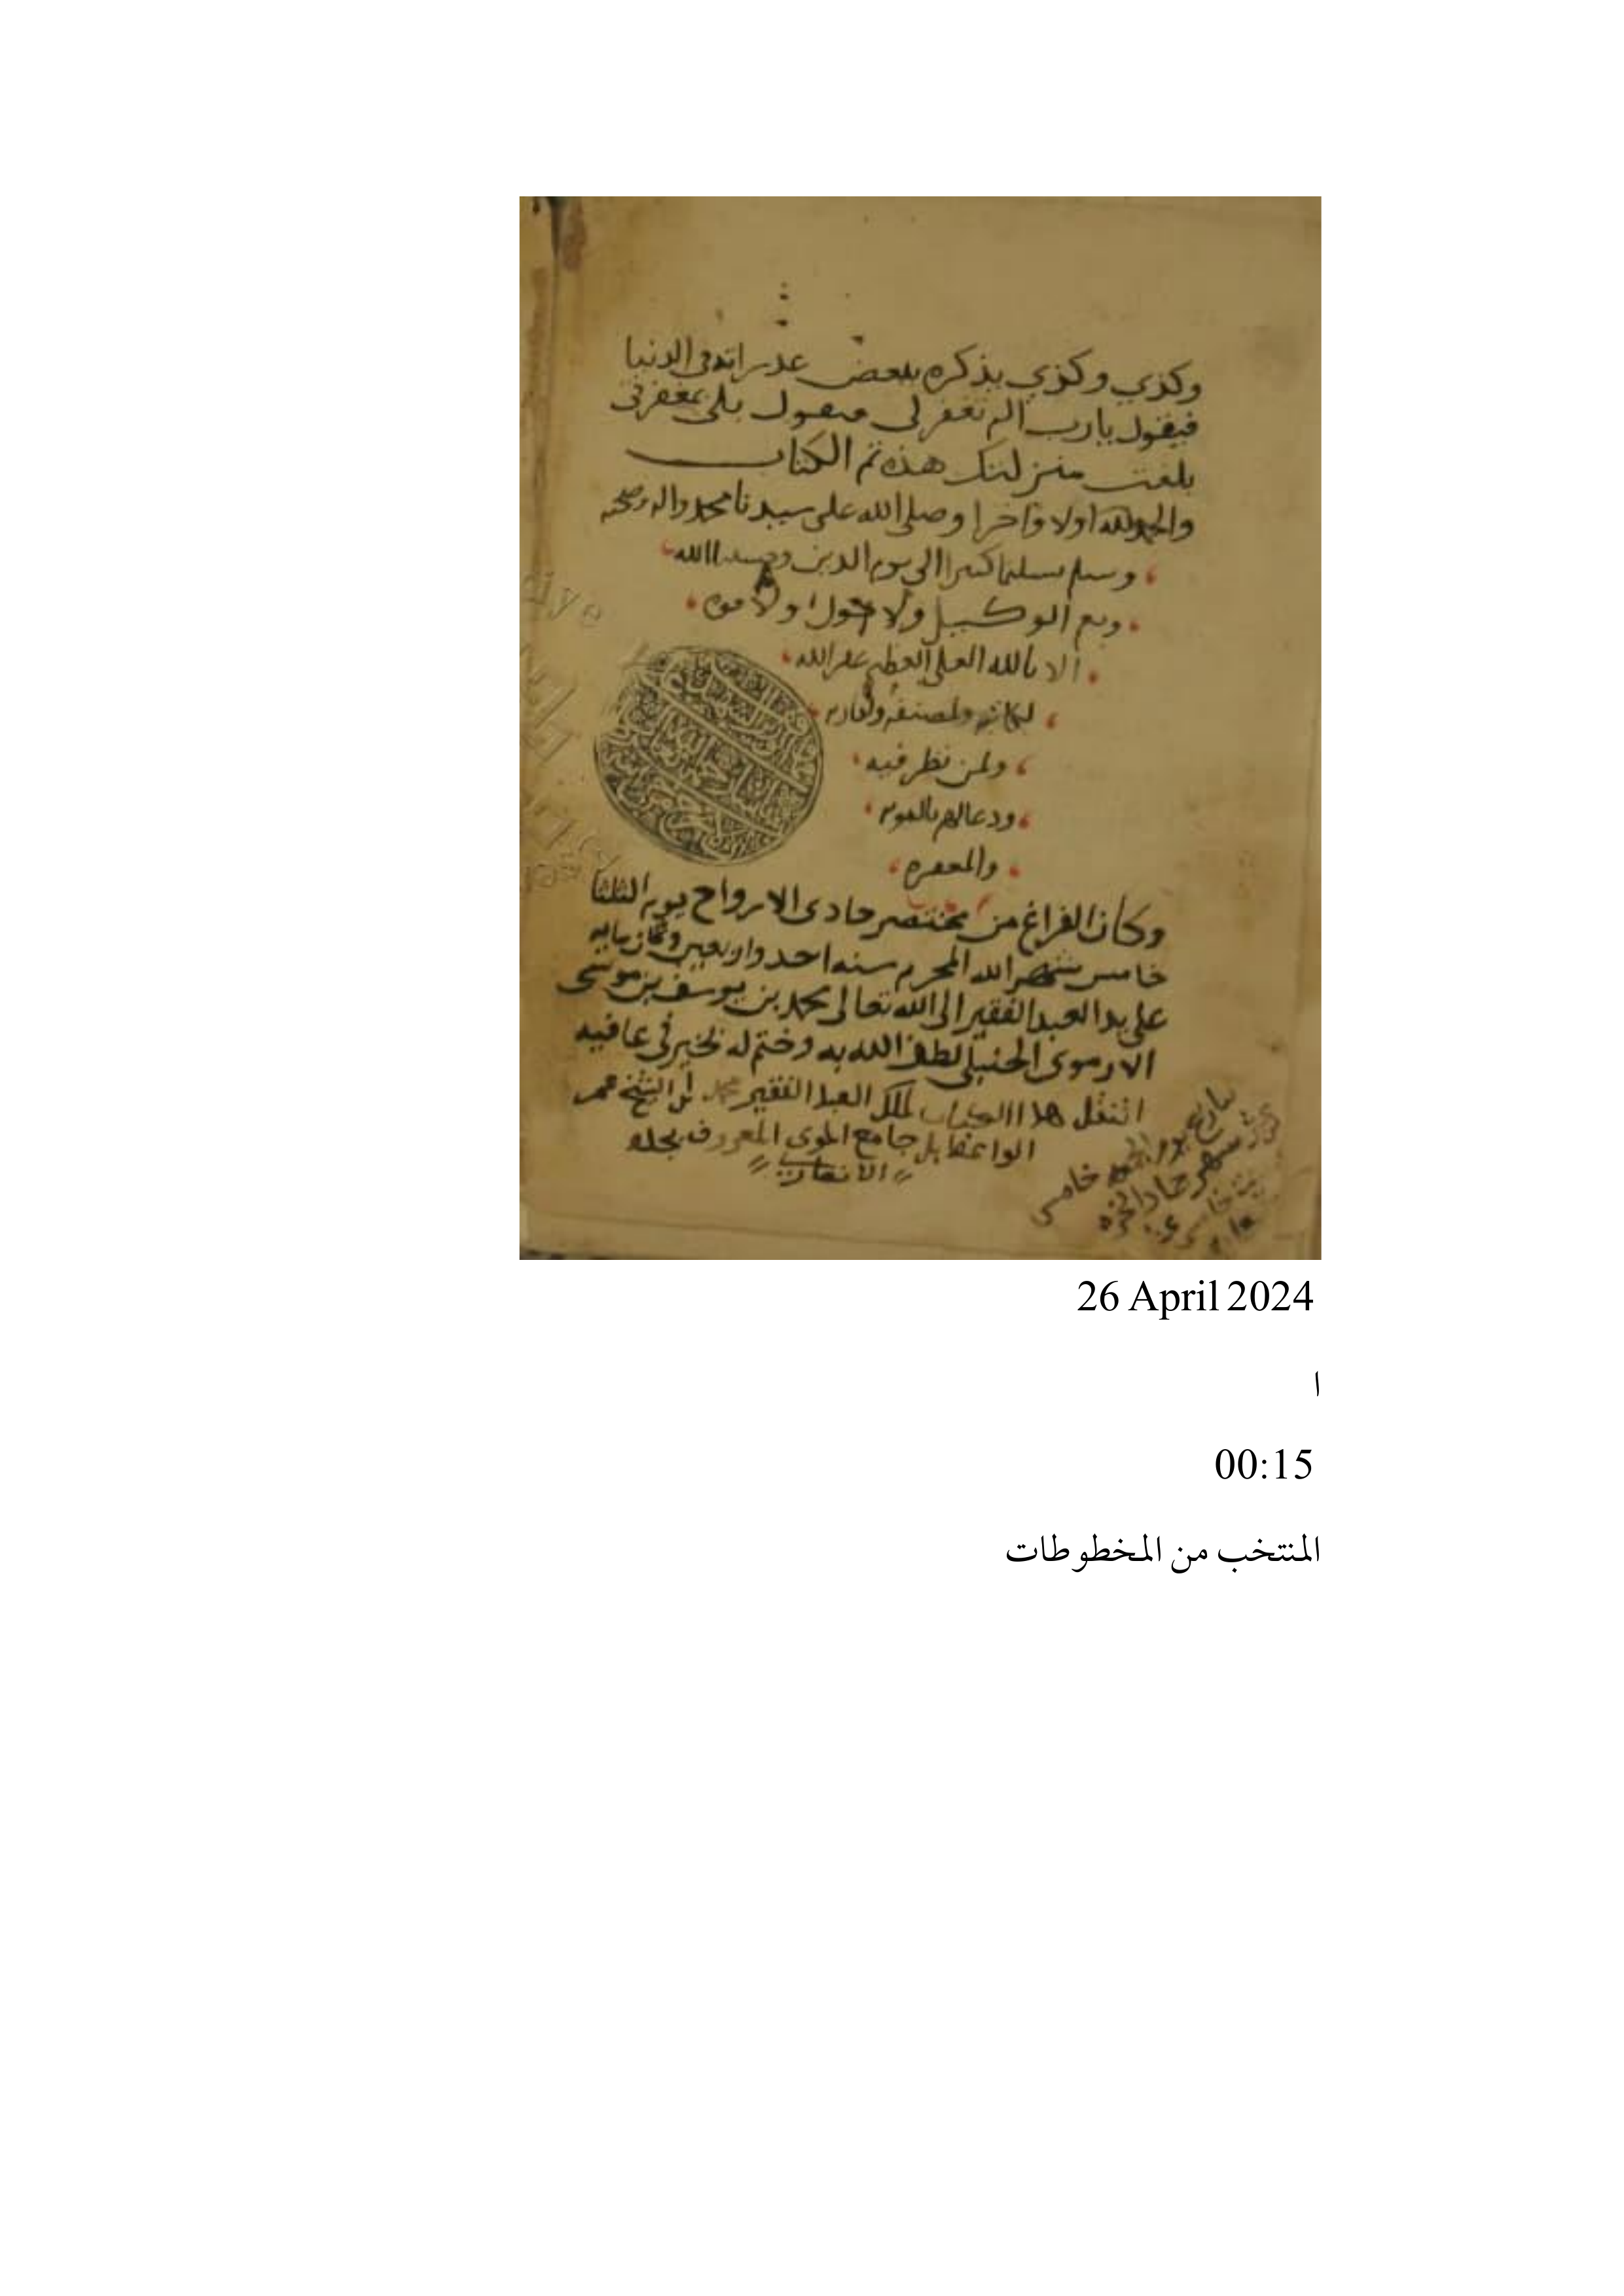 وكذي وكذي يذكره ببعض غدراته فى الدنيا
فيقول يا رب الم تغفر لى فيقول بلى بمغفرتى
بلغت منزلتك هذه تم الكتاب
والحمد لله اولا واخرا وصلى الله على سيدنا محمد واله وصحبه
وسلم تسليما كثيرا الى يوم الدين وحسبنا الله
ونعم الوكيل ولا حول ولا قوه
الا بالله العلى العظيم غفر الله
لكاتبه ولمصنفه ولقاريه
ولمن نظر فيه
ودعا لهم بالتوبه
والمغفره
وكان الفراغ من مختصر حادى الارواح يوم الثلثا
خامس شهر الله المحرم سنه احد واربعين وثمان مايه
على يد العبد الفقير الى الله تعالى محمد بن يوسف بن موسى
الارموى الحنبلى لطف الله به وختم له بخير فى عافيه
انتقل هذا الكتاب لملك العبد الفقير محمد بن الشيخ عمر
الواعظ بل جامع الموى المعروف بجلد
خامس
شهر جماد
26 April 2024
ا
00:15
المنتخب من المخطوطات